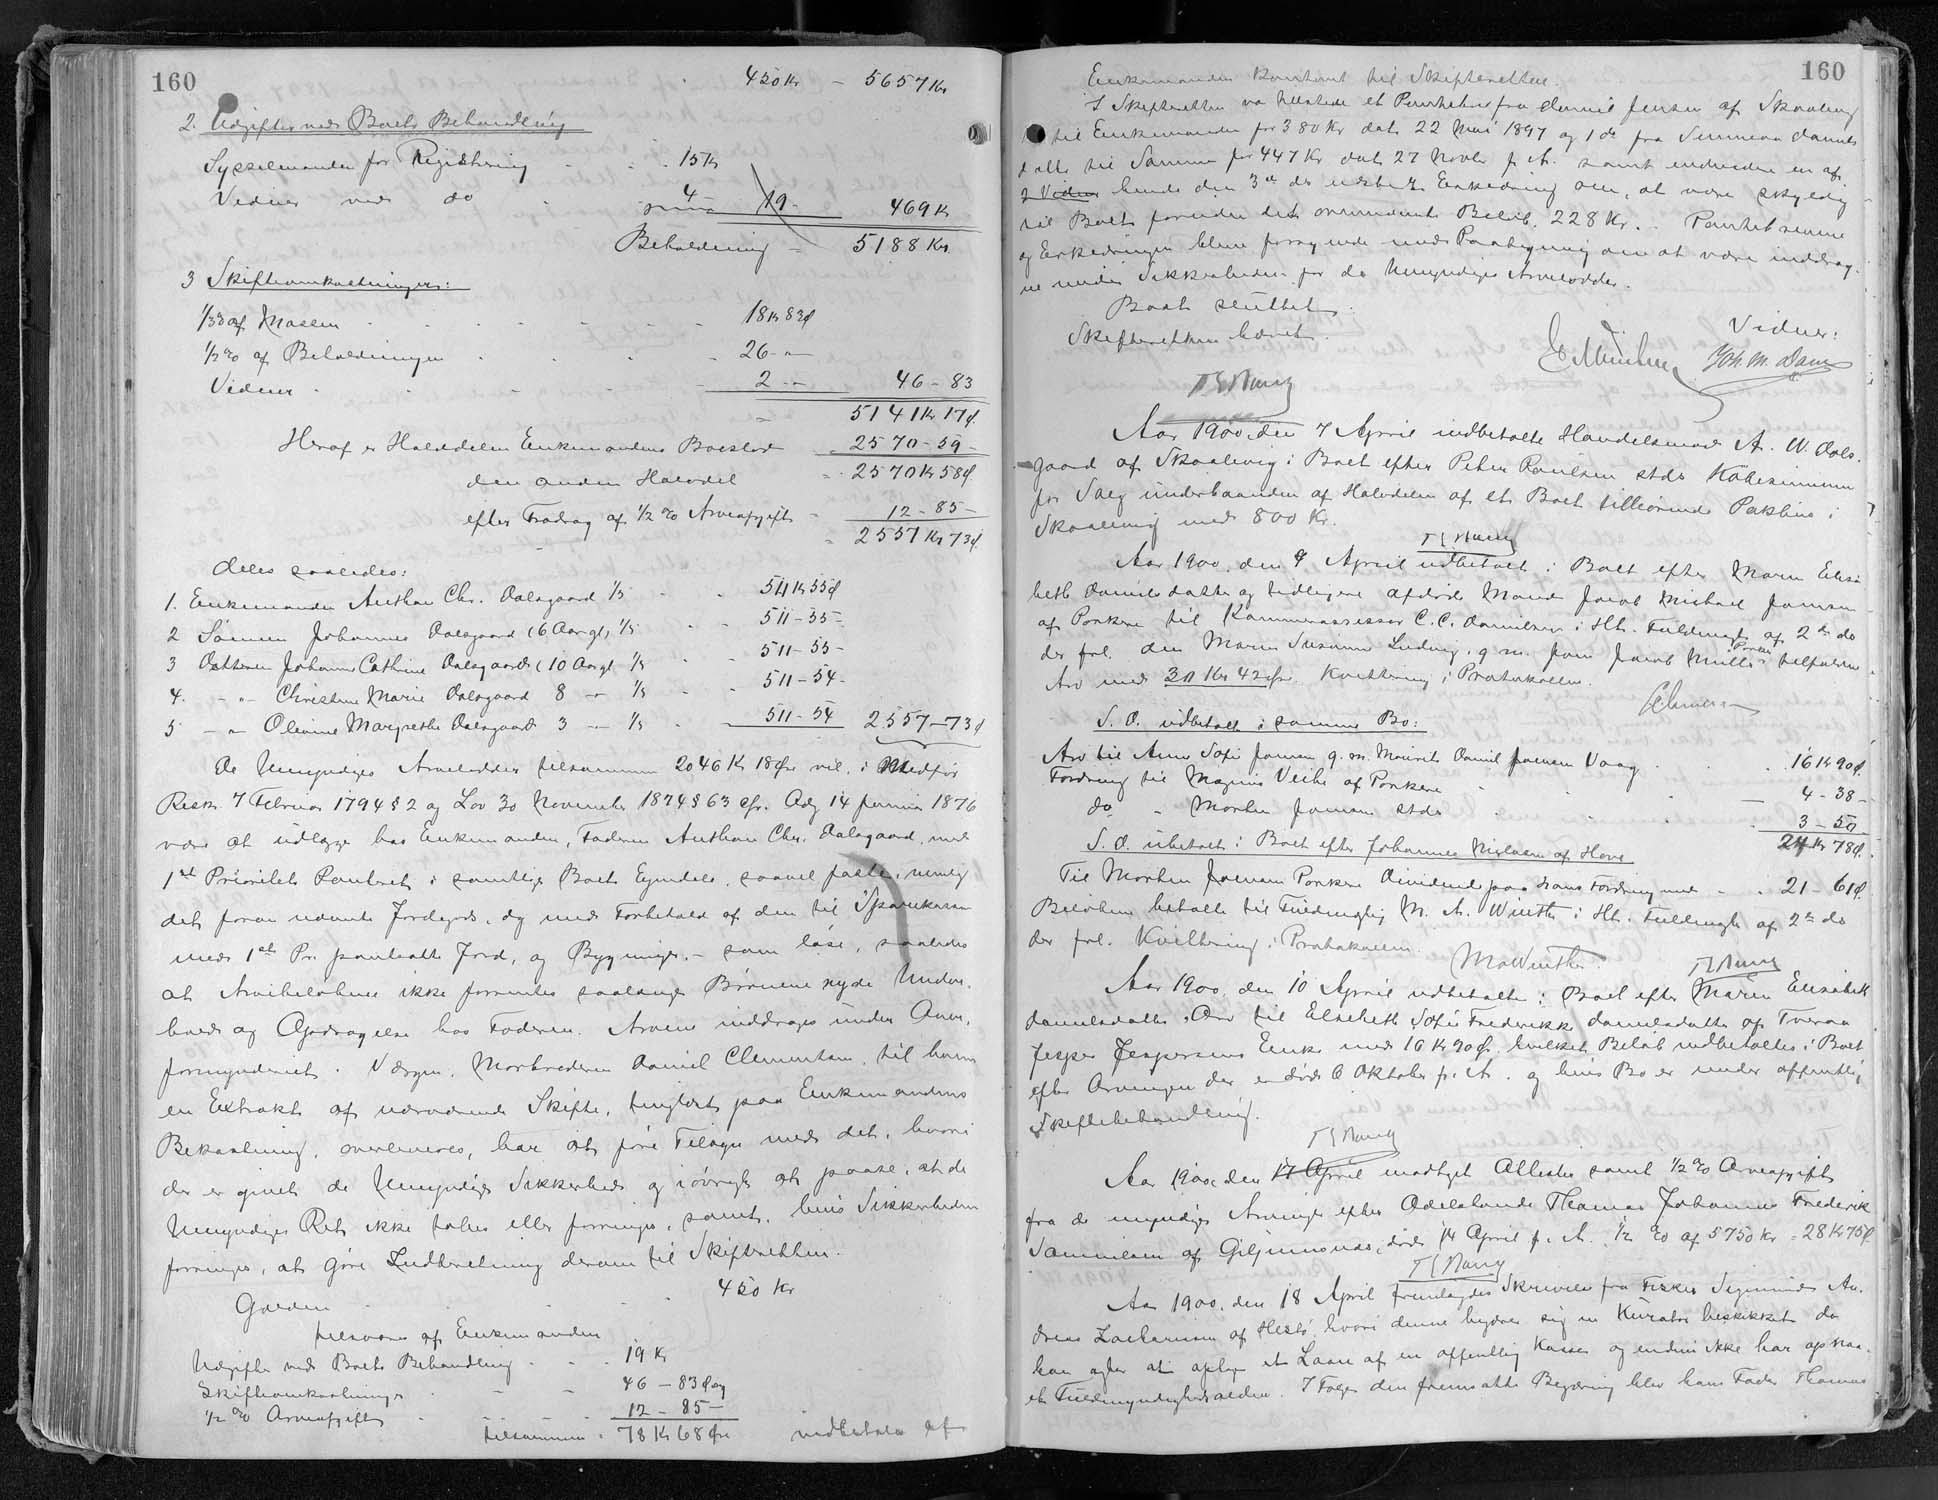 160
450 Kr - 5657 Kr
2. Udgifter ved Boets Behandling
Sysselmanden for Registrering 15 Kr
Vidner ved do 4 - 19 - 469 Kr
Beholdning - 5188 Kr.
3 Skifteomkostninger:
1/3 % af Massen 18 Kr 83 Ø
1/2 % af Beholdningen 26 - "
Vidner 2 - " 46 - 83
5141 Kr 17 Ø.
Heraf er Halvdelen Enkemandens Boeslod 2570 - 59 -
den anden Halvdel 2570 Kr 58 Ø
efter Fradrag af 1/2 % Arveafgift 12 - 85 -
2557 Kr 73 Ø.
deles saaledes:
1. Enkemanden Anthon Chr. Dalsgaard 1/5 511 Kr 55 Ø
2 Sønnen Johannes Dalsgaard (6 Aar gl, 1/5 511 - 55 -
3 Datteren Johanne Cathrine Dalsgaard (10 Aar gl 1/5 511 - 55 -
4. - " - Christine Marie Dalsgaard 8 - " 1/5 511 - 54 -
5 - " Olevine Margrethe Dalsgaard 3 - " 1/5 511 - 54 2557 - 73 Ø
De Umyndiges Arvelodder tilsammen 2046 Kr 18 Øre vil, i Medfør
Reskr. 7 Februar 1794 § 2 og Lov 30 November 1874 § 63 cfr. Adg 14 Januar 1876
være at udlægge hos Enkemanden, Faderen Anthon Chr. Dalsgaard, med
1st Prioritets Panteret i samtlige Boets Ejendele, saavel faste, nemlig
det foran nævnte Jordgods, dog med Forbehold af den til Sparekassen
med 1st Pr. pantsatte Jord, og Bygninger - som løse, saaledes
at Arvebeløbene ikke forrentes saalænge Børnene nyde Under-
hold og Opdragelse hos Faderen. Arven inddrages under Over-
formynderiet. Værgen, Morbroderen Daniel Clementsen, til hvem
en Extrakt af nærværende Skifte, tinglæst paa Enkemandens
Bekostning, overleveres, har at føre Tilsyn med det, hvori
der er givet de Umyndige Sikkerhed og iøvrigt at paase, at de
Umyndiges Ret ikke tabes eller forringes, samt, hvis Sikkerheden
forringes, at gøre Indberetning derom til Skifteretten.
Gælden 450 Kr
tilsvares af Enkemanden
Udgifter ved Boets Behandling 19 Kr
Skifteomkostninger 46 - 83 Ø og
1/2 % Arveafgift 12 - 85 -
tilsammen = 78 Kr 68 Øre indbetales af
160
Enkemanden kontant til Skifteretten.
I Skifteretten var tilstede et Pantebrev fra Daniel Jensen af Skaalevig
til Enkemanden for 380 Kr dat. 22 Mai 1897 og 1 do fra
datter til Samme for 447 Kr dat. 27 Novbr f. A. samt endvidere en af
2 Vidner hende den 3de ds udstedt Erkedring om, at være skyldig
til Boet foruden det ommeldte Beløb, 228 Kr. - Pantebrevene
og Erkedringen bleve forsynede med Paategning om at være inddrag-
ne under Sikkerheden for de Umyndiges Arvelodder.
Boet sluttet.
Skifteretten hævet.
Vidner:
Joh. M. Dam
Aar 1900, den 7 April indbetalte Handelsmand A. W. Dals-
gaard af Skaalevig i Boet efter Peter Poulsen stds Købesummen
for Salg underhaanden af Halvdelen af et Boet tilhørende Pakhus i
Skaalevig med 800 Kr.
Aar 1900, den 9 April udbetalt i Boet efter Maren Elisa-
beth Danielsdatter og tidligere afdøde Mand Jacob Michael Joensen
af Porkere til Kammerassessor C. C. Danielsen i Hh. Fuldmagt af 2den ds
der frl. den Maren Susanne Ludvig, g. m. Joen Jacob Müller Porkere tilfaldne
Arv med 30 Kr 42 Øre. Kvittering i Protokollen.
S. D. udbetalt i samme Bo:
Arv til Anne Sofie Joensen g. m. Mourits Daniel Joensen Vaag 16 Kr 90 Ø.
Fordring til Magnus Veihe af Porkere 4 - 38 -
do - Morten Joensen stds 3 - 50 -
24 Kr 78 Ø.
S. D. ubetalt i Boet efter Johannes Nielsen af Hove
Til Morten Joensen Porkere Dividende paa hans Fordring med 21 - 61 Ø.
Beløbene betalte til Fuldmægtig M. A. Winther i Hh. Fuldmagt af 2den ds
der frl. Kvittering i Protokollen.
MAWinther
Aar 1900, den 10 April udbetalte i Boet efter Maren Elisabeth
Danielsdatter Arv til Elsebeth Sofie Frederikke Danielsdatter af Tveraa
Jesper Jespersens Enke med 16 Kr 90 Ør, hvilket Beløb indbetaltes i Boet
efter Arvingen der er død 6 Oktober f. A. og hvis Bo er under offentlig
Skiftebehandling.
Aar 1900, den 17 April modtaget Attester samt 1/2 % Arveafgift
fra de myndige Arvinger efter Odelsbonde Thomas Johannes Frederik
Samuelsen af Giljumonas, død 14 April f. A. 1/2 % af 5750 Kr = 28 Kr 75 Ø.
Aar 1900, den 18 April fremlagdes Skrivelse fra Fisker Sigmund An-
dreas Zachariasen af Hestø, hvori denne begærer sig en Kurator beskikket da
han agter at optage et Laan af en offentlig Kasse og endnu ikke har opnaa-
et Fuldmyndighedsalderen. I Følge den fremsatte Begæring blev hans Fader Thomas